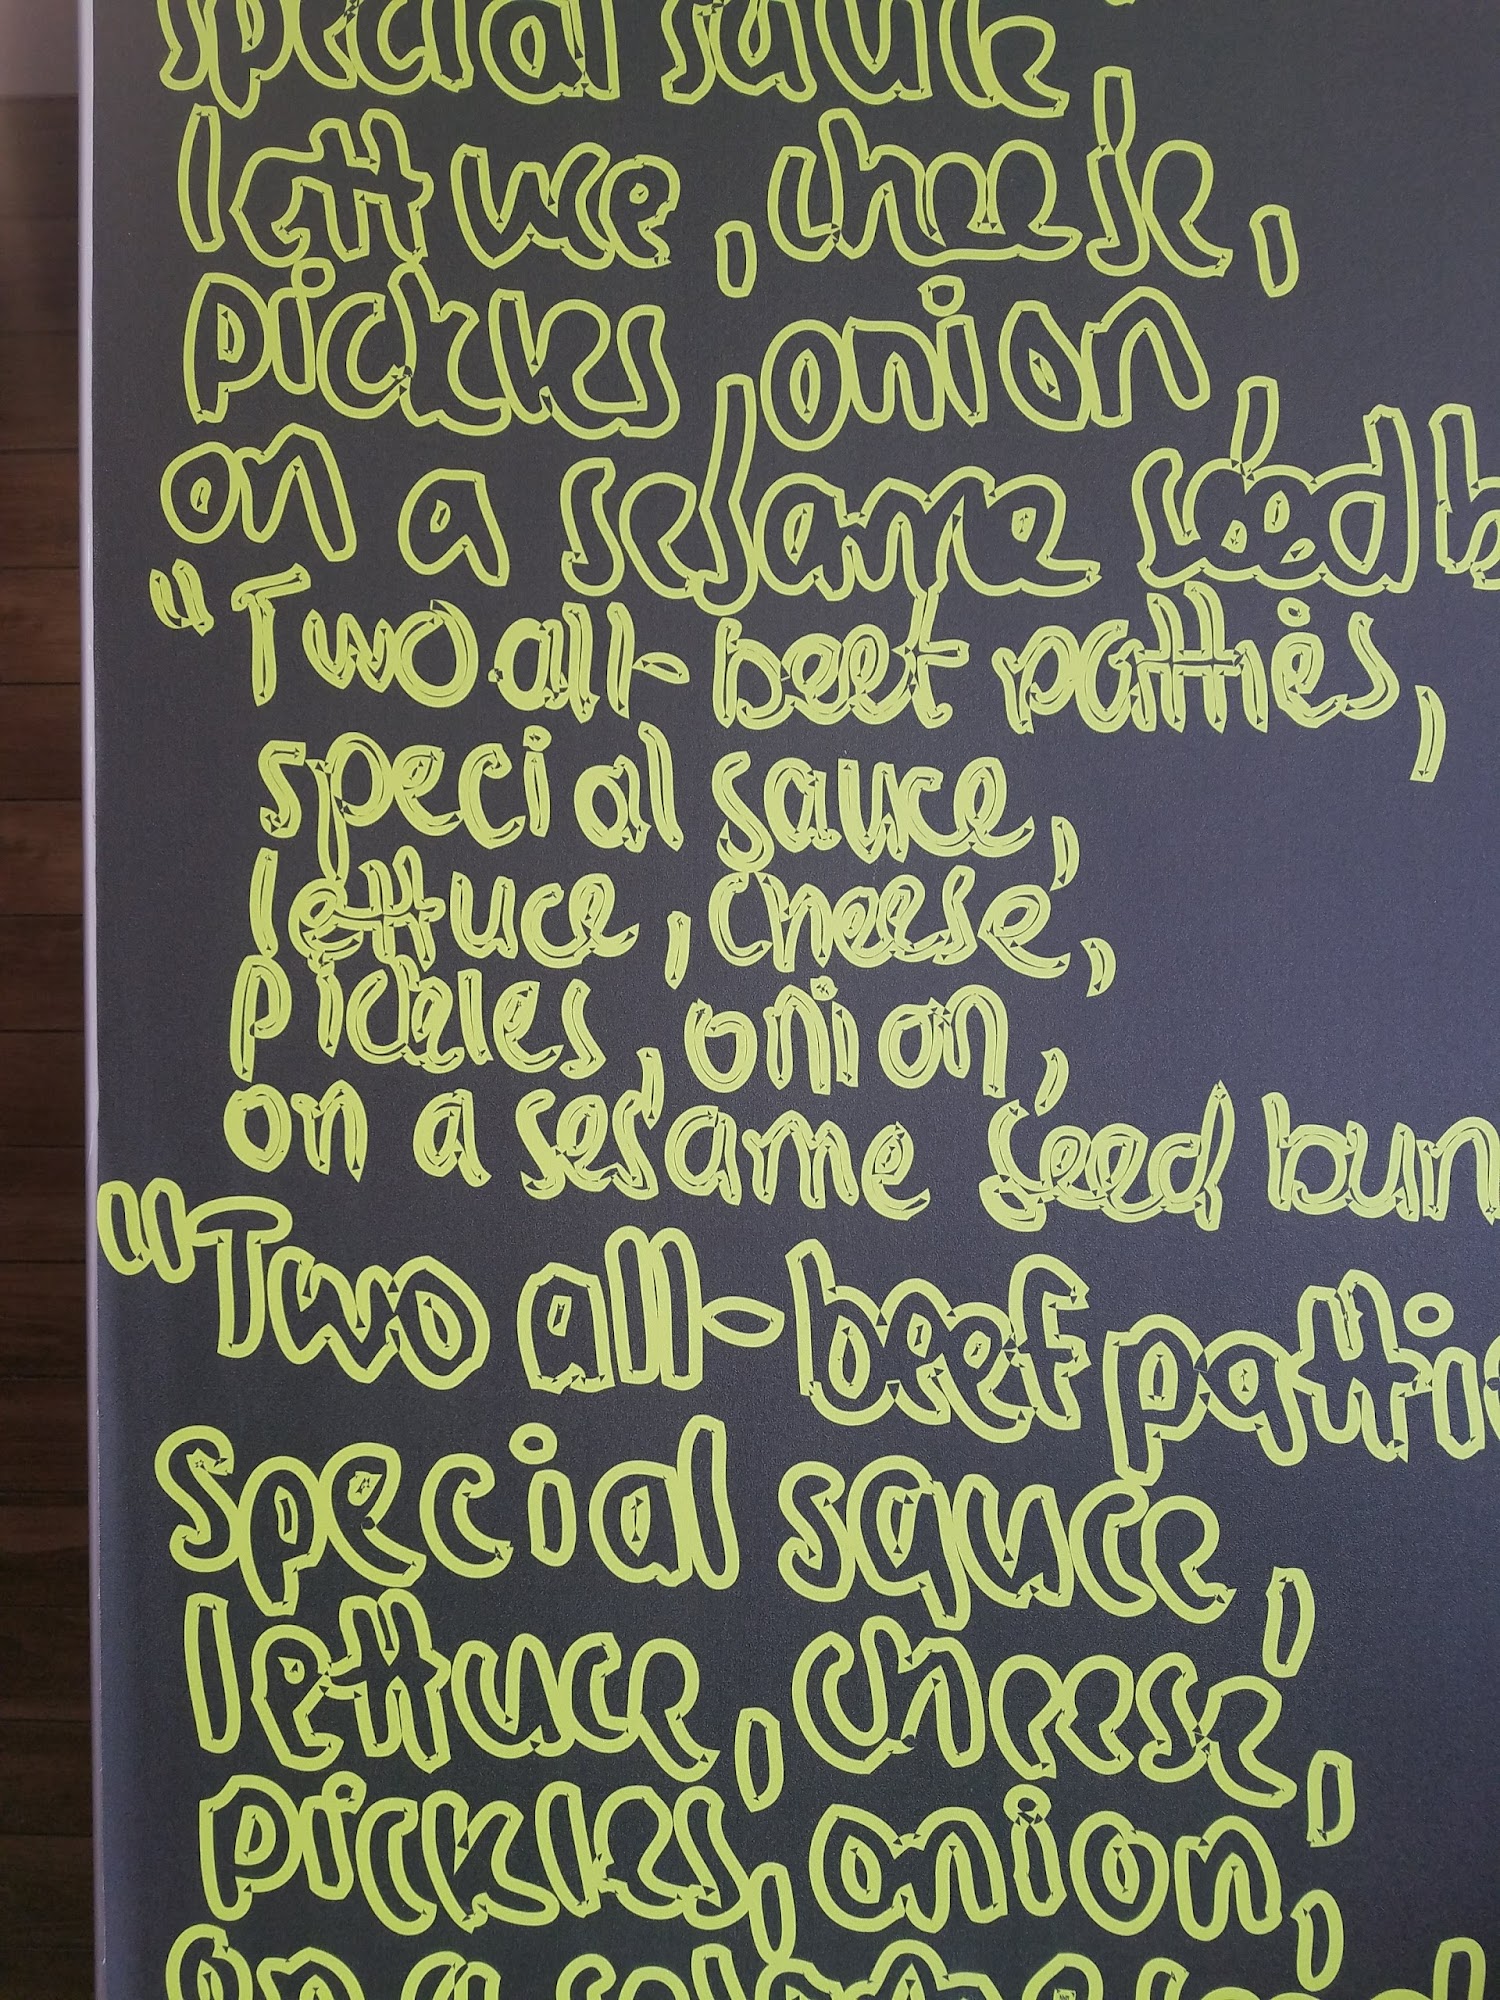 special sauce,
lettuce, cheese,
pickles, onion,
on a sesame seed b
"Two all-beef patties,
special sauce,
lettuce, cheese,
pickles, onion,
on a sesame seed bun
"Two all-beef pattie
special sauce,
lettuce, cheese,
pickles, onion,
on a sesame seed